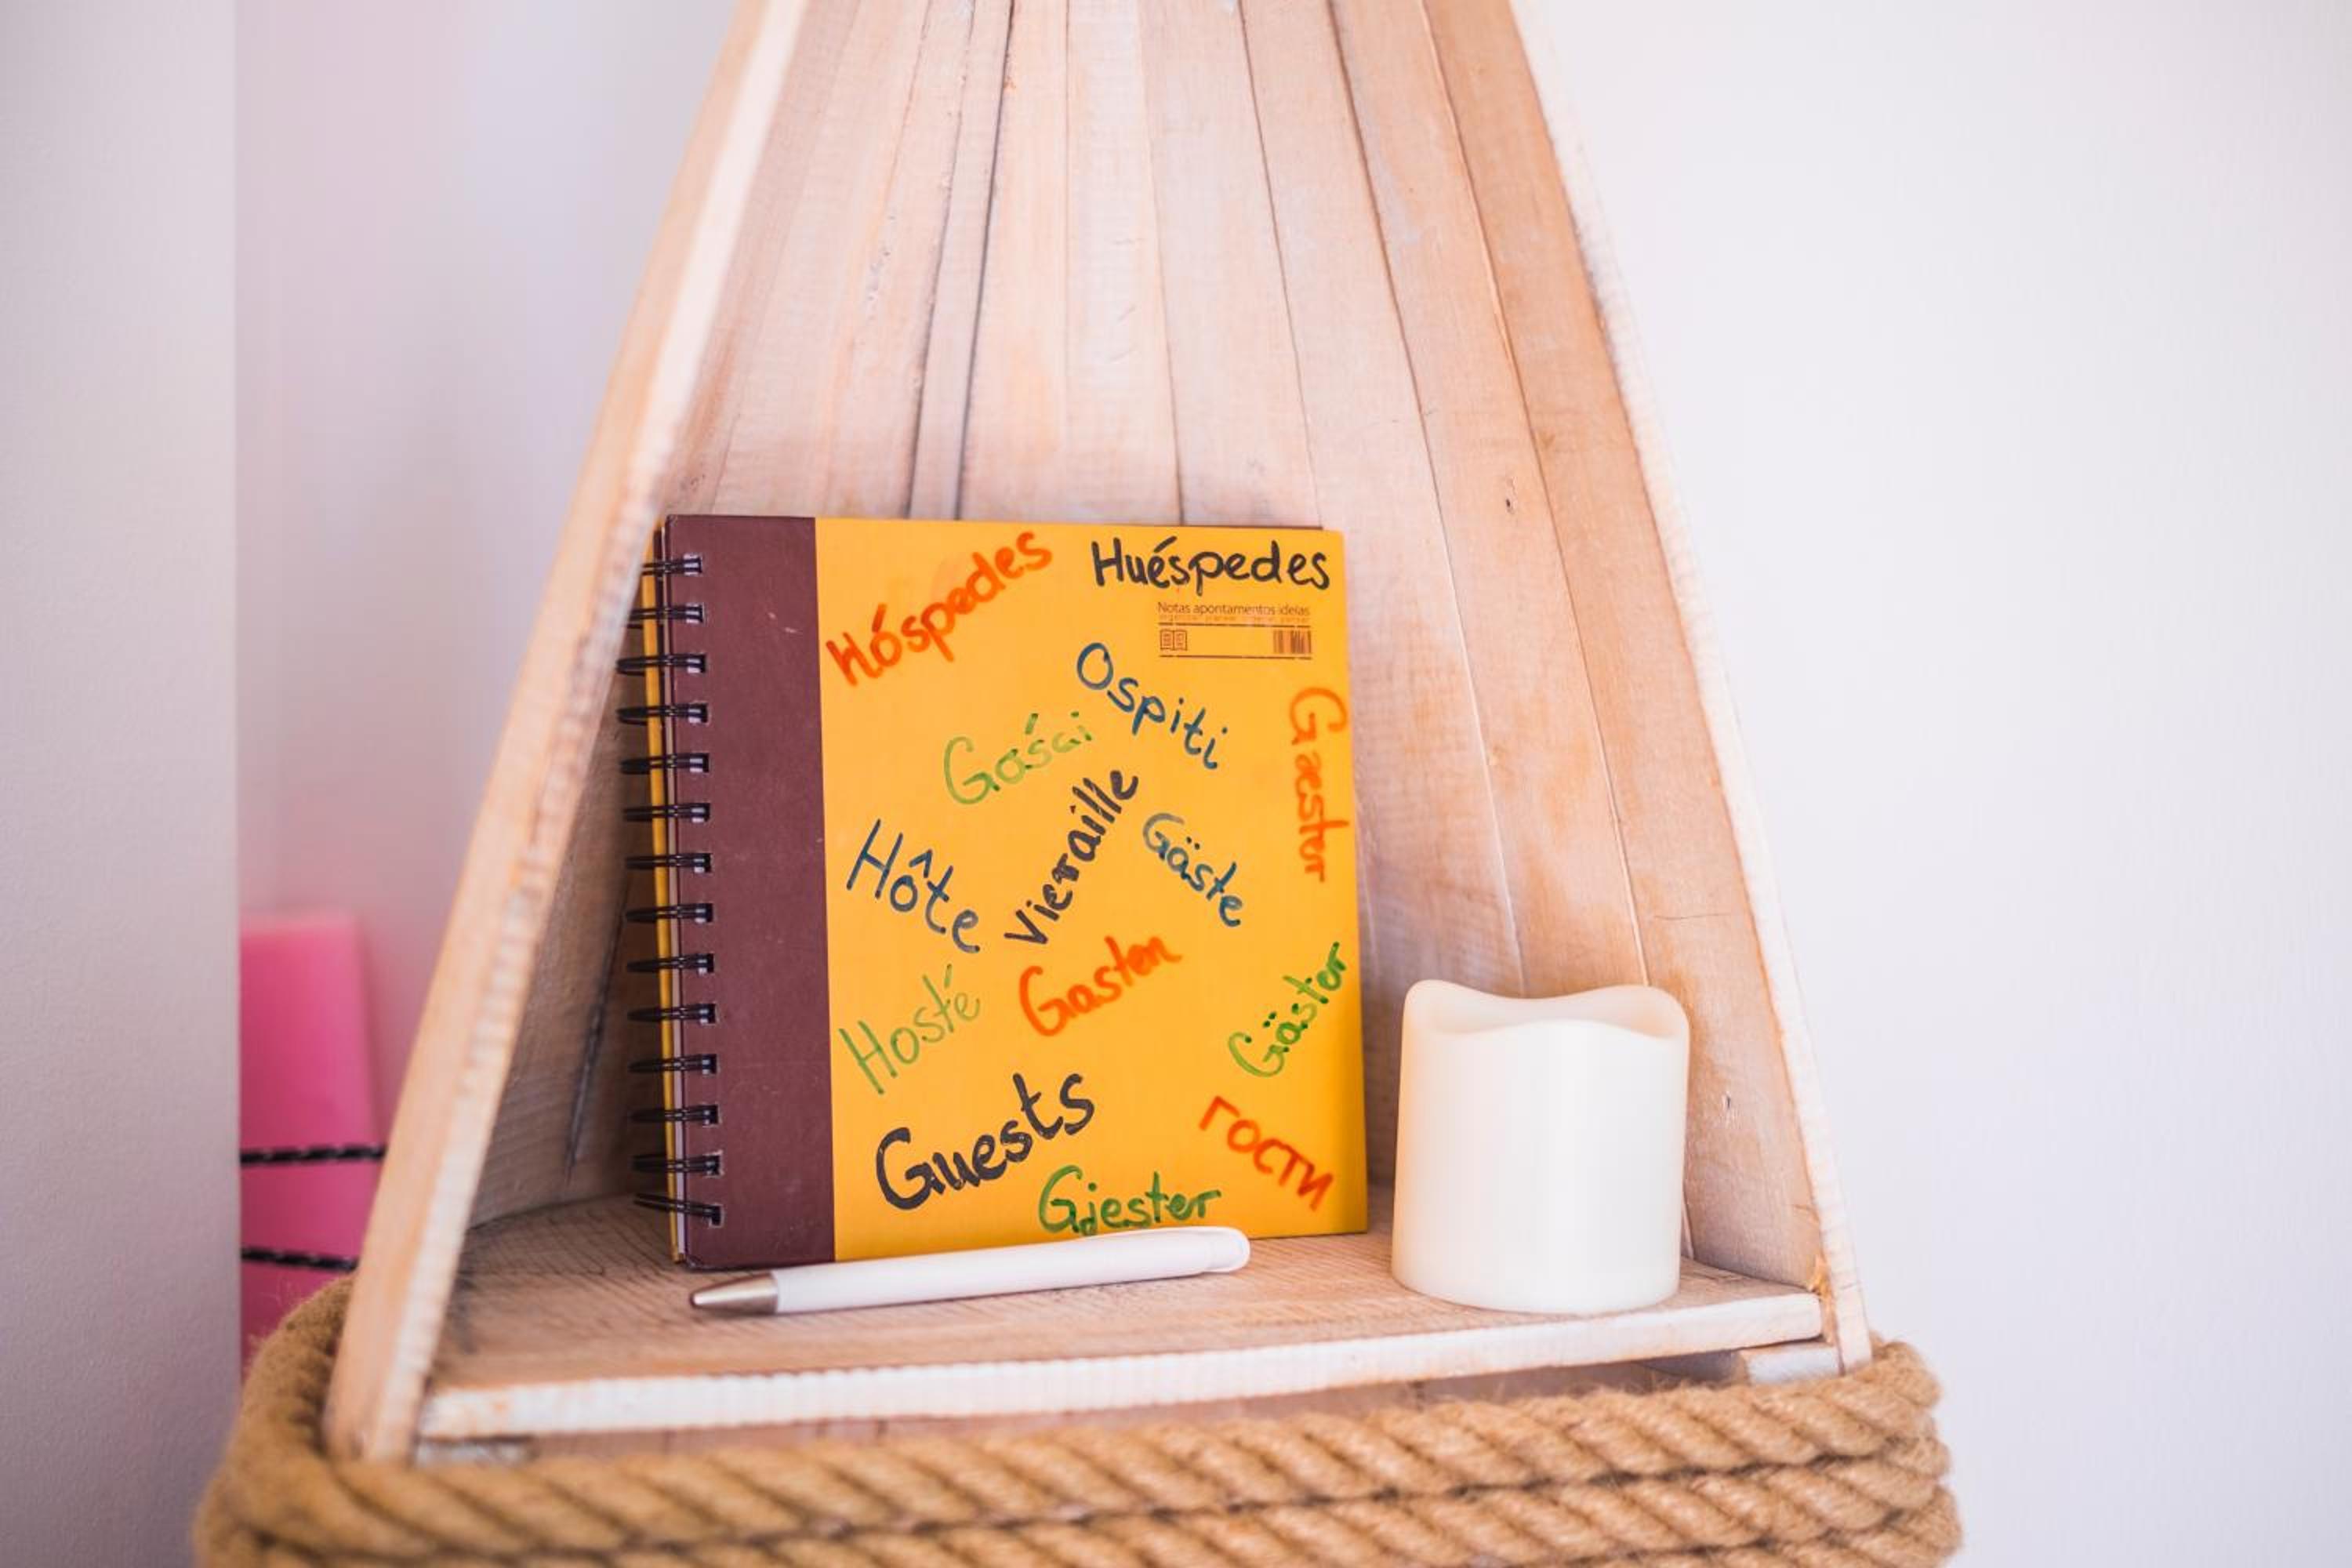 Hóspedes
Huéspedes
Notas apontamentos ideias
Ospiti
Gaester
Gośći
Vieraille
Hôte
Gäste
Gasten
Hosté
Gäster
Guests
гости
Gjester